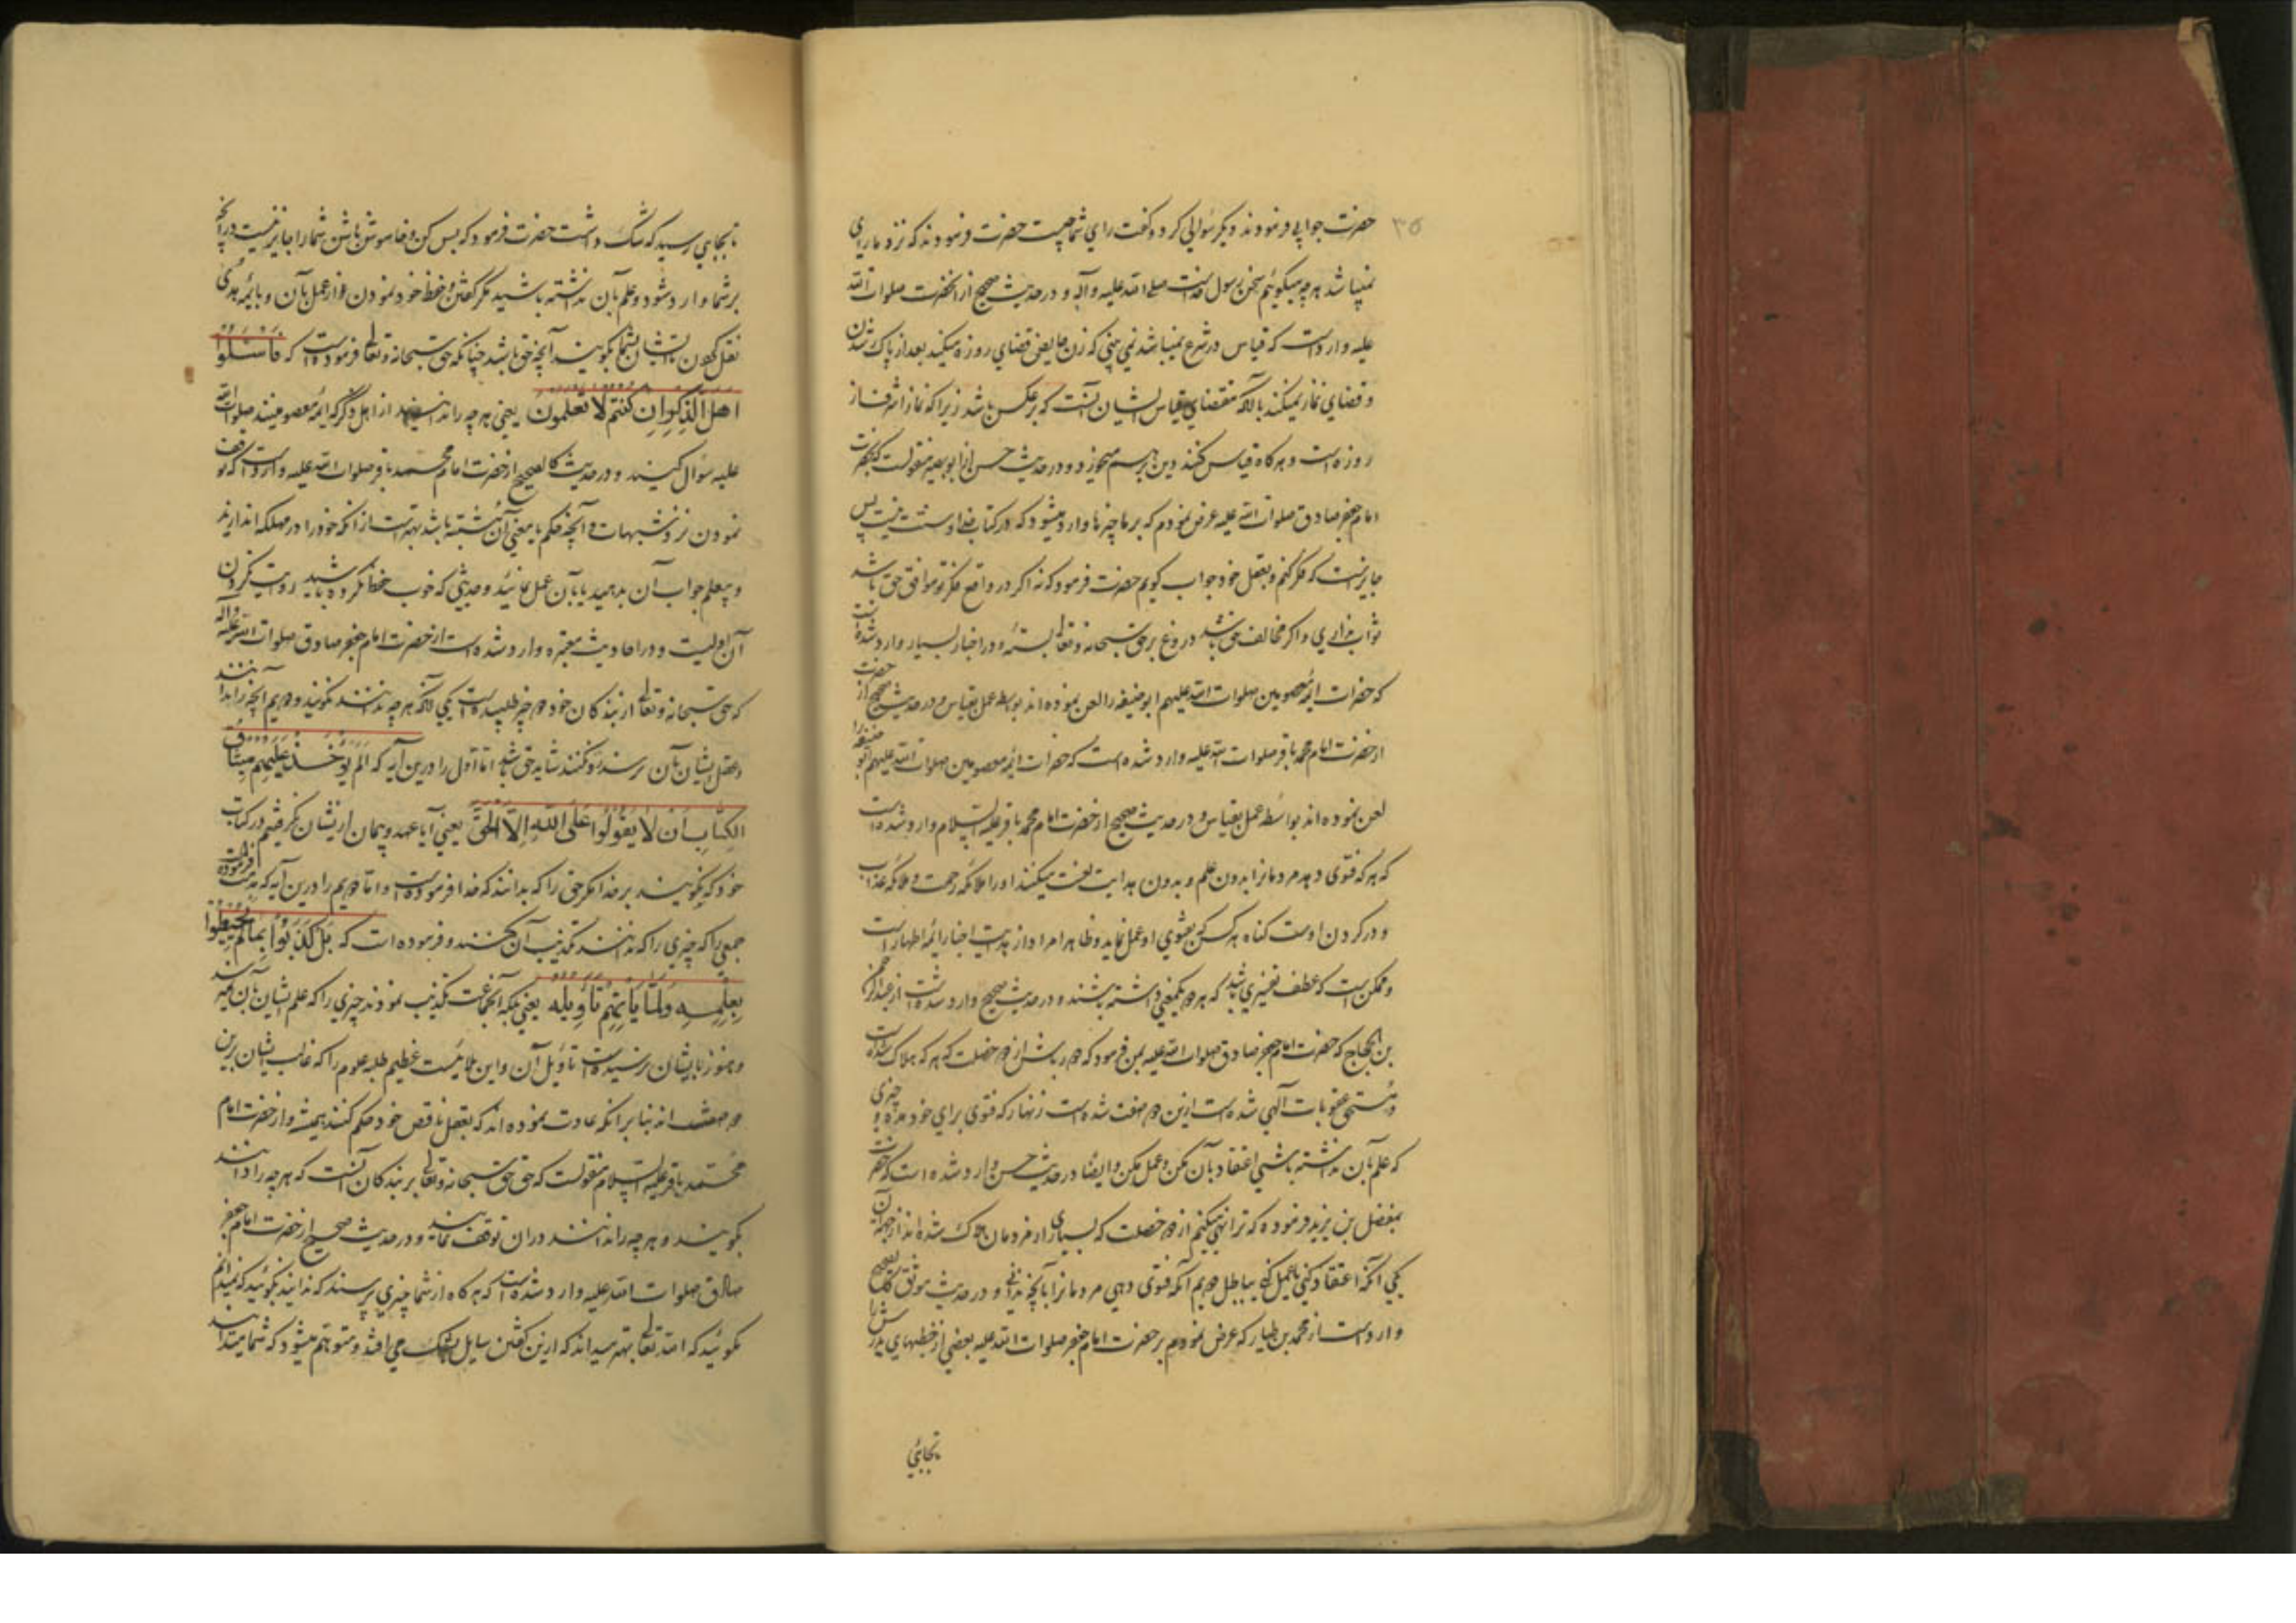 ۳۵
حضرت جوابی فرمودند دیگر سؤالی کرد و گفت رای شما چیست حضرت فرمودند که نزد ما رای
نمیباشد هر چه میگوئیم سخن رسول خداست صلی الله علیه و آله و در حدیث صحیح از انحضرت صلوات الله
علیه وارد است که قیاس در شرع نمیباشد نمی بینی که زن حایض قضای روزه میکند بعد از پاک شدن
و قضای نماز نمیکند با آنکه مقتضای قیاس ایشان آنست که بر عکس باشد زیرا که نماز اشرف از
روزه است و هر گاه قیاس کنند دین بر هم میخورد و در حدیث حسن از ابو بصیر منقولست که بحضرت
امام جعفر صادق صلوات الله علیه عرض نمودم که بر ما چیزها وارد میشود که در کتاب خدا و سنت نیست پس
جایز است که فکر کنم و بعقل خود جواب گویم حضرت فرمود که نه اگر در واقع فکر تو موافق حق باشد
ثواب نداری و اگر مخالف حق باشد دروغ بر حق سبحانه و تعالی بسته و در اخبار بسیار وارد شده است
که حضرات ائمه معصومین صلوات الله علیهم ابو حنیفه را لعن نموده اند بواسطه عمل بقیاس و در حدیث صحیح از حضرت
از حضرت امام محمد باقر صلوات الله علیه وارد شده است که حضرات ائمه معصومین صلوات الله علیهم ابو حنیفه را
لعن نموده اند بواسطه عمل بقیاس و در حدیث صحیح از حضرت امام محمد باقر علیه السلام وارد شده است
که هر که فتوی دهد مردمانرا بدون علم و بدون هدایت لعنت میکنند او را ملائکه رحمت و ملائکه عذاب
و در گردن اوست گناه هر کس که بفتوی او عمل نماید و ظاهرا مراد از هدایت اخبار ائمه اطهار است
و ممکن است که عطف تفسیری باشد که هر دو بیکمعنی داشته باشند و در حدیث صحیح وارد شده است از عبد الرحمن
بن الحجاج که حضرت امام جعفر صادق صلوات الله علیه بمن فرمود که دور باش از دو خصلت که هر که هلاک شده است
و مستحق عقوبات الهی شده است ازین دو صفت شده است زنهار که فتوی برای خود مده و چیزی
که علم بآن نداشته باشی اعتقاد بآن مکن و عمل مکن و ایضا در حدیث حسن وارد شده است که حضرت
بمفضل بن یزید فرموده که ترا نهی میکنم از دو خصلت که بسیاری از مردمان هلاک شده اند از جهة آن
یکی آنکه اعتقاد کنی یا عمل کنی بباطل دویم آنکه فتوی دهی مردمانرا بآنچه ندانی و در حدیث موثق کالصحیح
وارد است از محمد بن طیار که عرض نمودم بر حضرت امام جعفر صلوات الله علیه بعضی از خطبهای پدرش را
تا بجایی
تا بجایی رسید که شک داشت حضرت فرمود که بس کن و خاموش باش شما را جایز نیست در آنچه
بر شما وارد شود و علم بآن نداشته باشید مگر گفتن و حفظ خود نمودن از عمل بآن و با ئمه هدی
نقل کردن تا ایشان بشما بگویند آنچه حق باشد چنانکه حق سبحانه و تعالی فرموده است که فَاسْئَلُوا
اَهْلَ الذِّکْرِ اِنْ کُنْتُمْ لَا تَعْلَمُونَ یعنی هر چه را ندانید از اهل ذکر که ائمه معصومینند صلوات الله
علیه سؤال کنید و در حدیث کالصحیح از حضرت امام محمد باقر صلوات الله علیه وارد است که توقف
نمودن نزد شبهات و آنچه حکم یا معنی آن مشتبه باشد بهتر است از آنکه خود را در مهلکه اندازند
و بیعلم جواب آن بدهید یا بآن عمل نمائید و حدیثی که خوب حفظ نکرده باشید روایت نکردن
آن اولیست و در احادیث معتبره وارد شده است از حضرت امام جعفر صادق صلوات الله علیه و آله
که حق سبحانه و تعالی از بندگان خود دو چیز طلبیده است یکی آنکه هر چه ندانند نگویند و دویم آنچه را ندانند
و عقل ایشان بآن نرسد رد نکنند شاید حق باشد اما اول را درین آیه که اَلَمْ یُؤْخَذْ عَلَیْهِمْ مِیثَاقُ
الْکِتَابِ اَنْ لَا یَقُولُوا عَلَی اللَّهِ اِلَّا الْحَقَّ یعنی آیا عهد و پیمان از ایشان نگرفتیم در کتاب
خود که نگویند بر خدا مگر حق را که بدانند که خدا فرموده است و اما دویم را درین آیه که مذمت فرموده است
جمعی را که چیزی را که ندانند تکذیب آن کنند و فرموده است که بَلْ کَذَّبُوا بِمَا لَمْ یُحِیطُوا
بِعِلْمِهِ وَلَمَّا یَأْتِهِمْ تَأْوِیلُهُ یعنی بلکه آنجماعت تکذیب نمودند چیزی را که علم ایشان بآن نمیرسد
و هنوز بایشان نرسیده است تاویل آن و این بلائیست عظیم طلبه علوم را که غالب ایشان برین
دو صفت اند بنا بر آنکه عادت نموده اند که بعقل ناقص خود حکم کنند همیشه و از حضرت امام
محمد باقر علیه السلام منقولست که حق حق سبحانه و تعالی بر بندگان آنست که هر چه را دانند
بگویند و هر چه را ندانند در آن توقف نمایند و در حدیث صحیح از حضرت امام جعفر
صادق صلوات الله علیه وارد شده است که هر گاه از شما چیزی پرسند که ندانید بگوئید که نمیدانم
مگوئید که الله تعالی بهتر میداند که ازین گفتن سایل بشک می افتد و متوهم میشود که شما میدانید